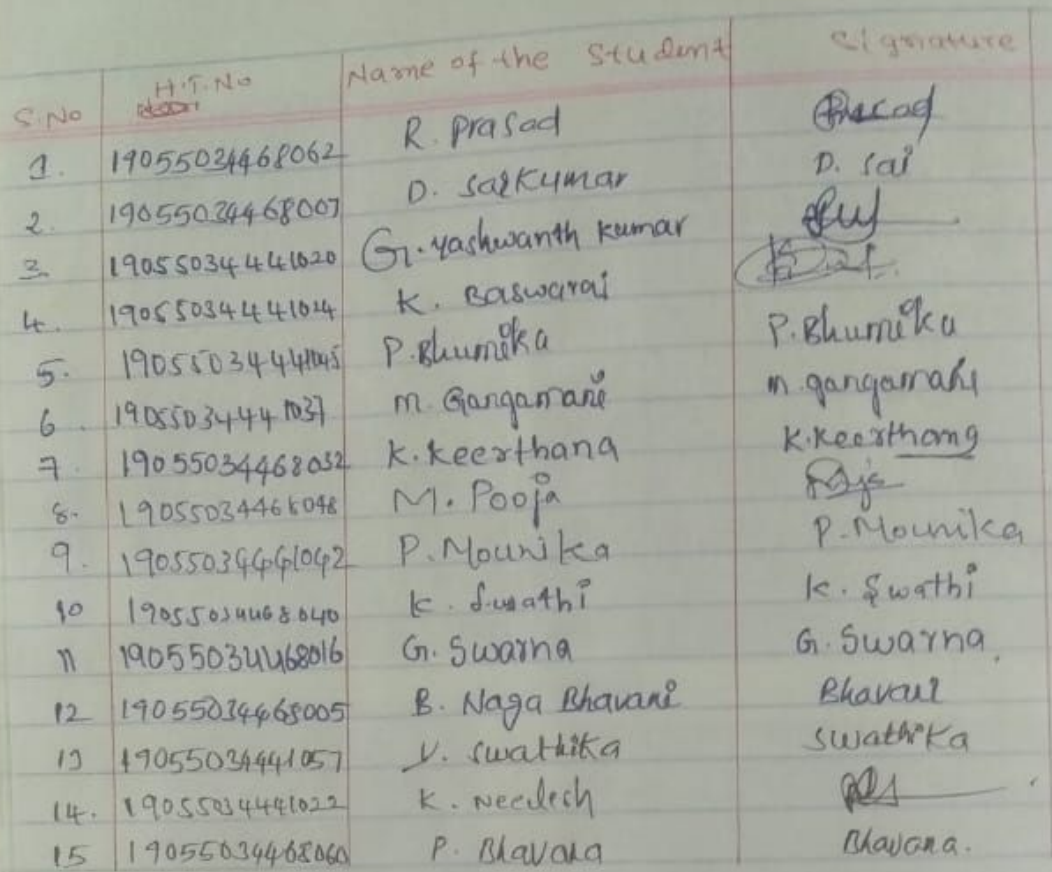 S.No H.T.No Name of the Student Signature
1. 19055034468062 R. Prasad Prasad
2. 19055034468007 D. Saikumar D. Sai
3 19055034441020 G. Yashwanth Kumar
4. 19055034441024 K. Baswaraj
5. 19055034441045 P. Bhumika P. Bhumika
6. 19055034441037 M. Gangamani M. gangamani
7. 19055034468032 K. Keerthana K. Keerthana
8. 19055034468048 M. Pooja
9. 19055034441042 P. Mounika P. Mounika
10 19055034468040 K. Swathi K. Swathi
11 19055034468016 G. Swarna G. Swarna
12 19055034468005 B. Naga Bhavani Bhavani
13 19055034441057 V. Swathika Swathika
14. 19055034441022 K. Neelesh
15 19055034468060 P. Bhavana Bhavana.